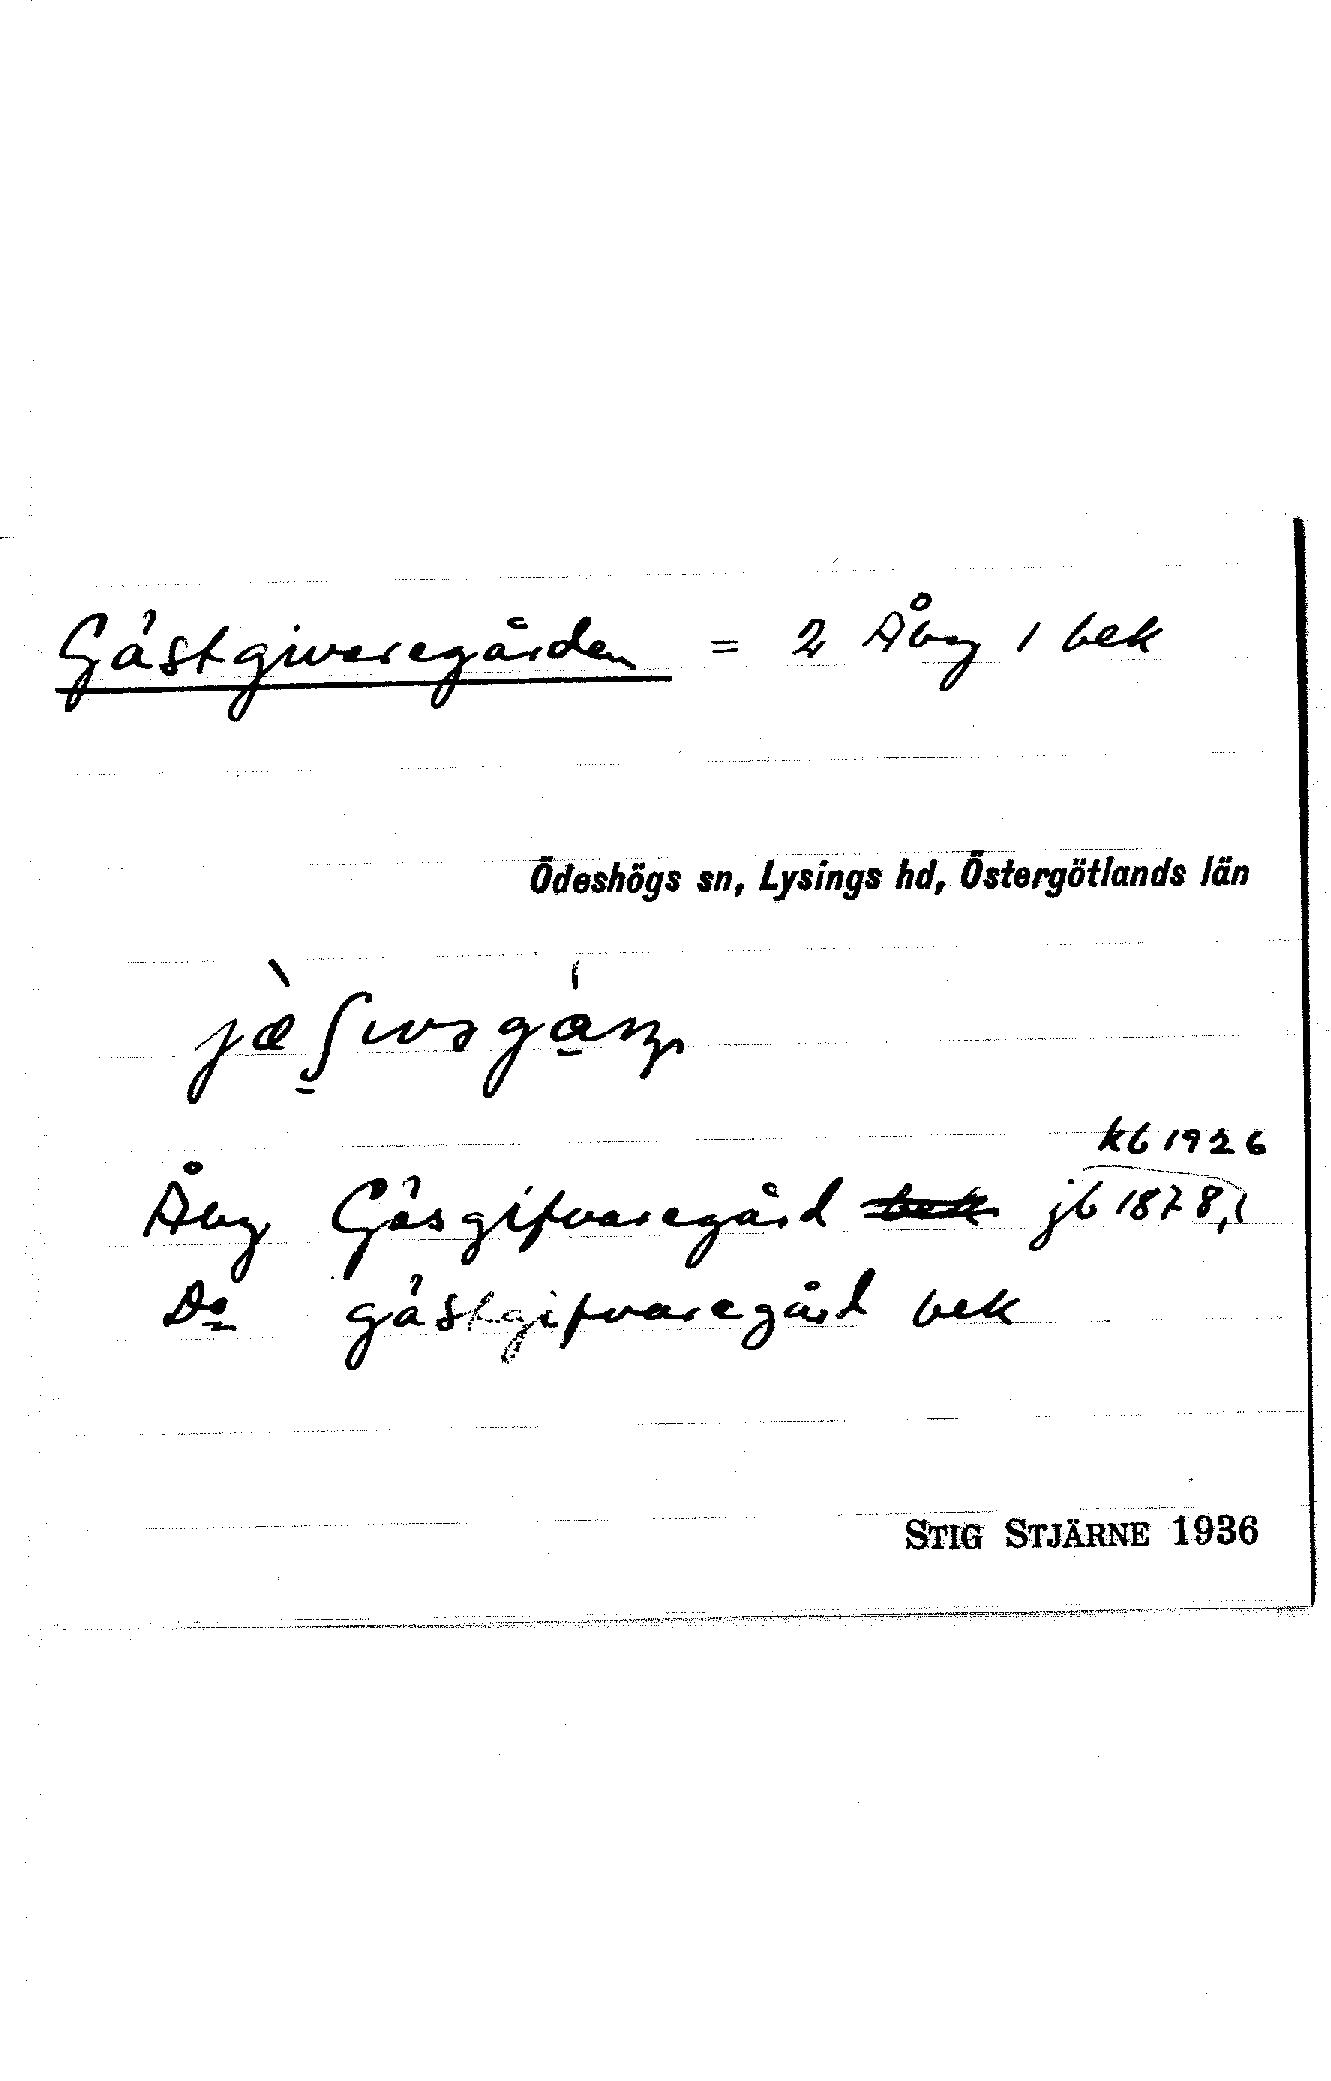 Gästgivaregården = 2 Åbg 1 bek
Ödeshögs sn, Lysings hd, Östergötlands län
kb 1926
Åbg Gäsgifvaregård bek jb 1878,1
Do gästgifvaregård bek
STIG STJÄRNE 1936